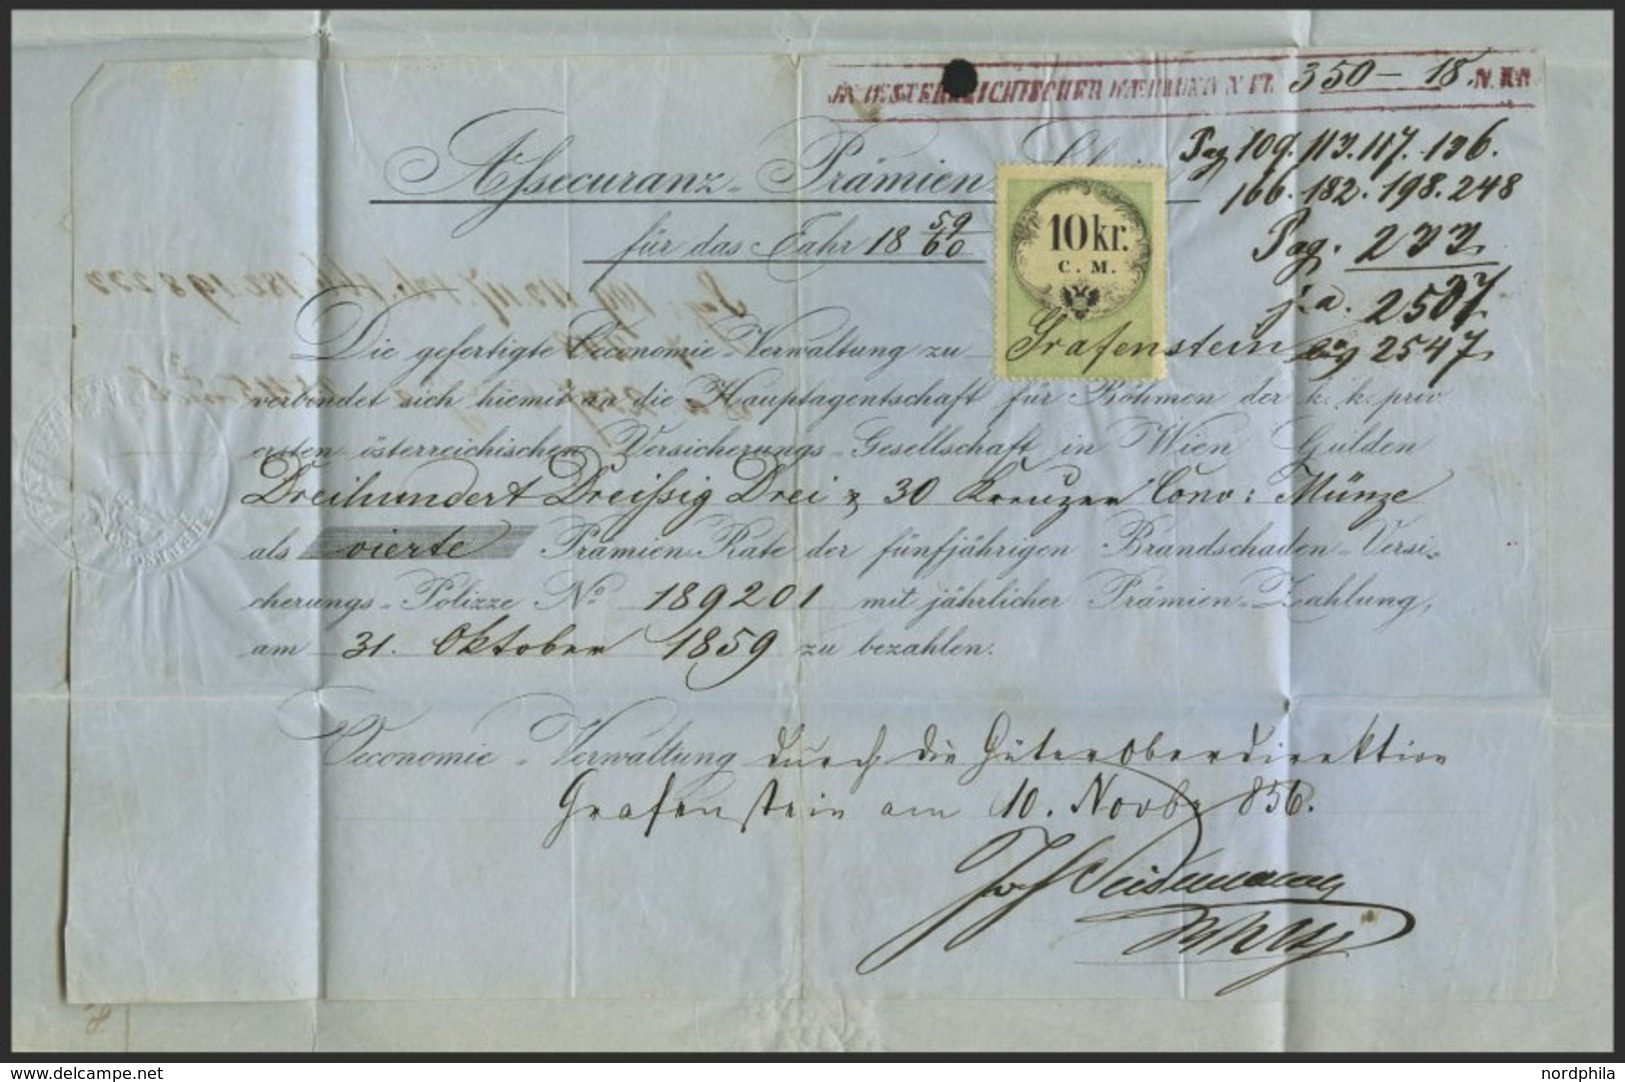 IN OESTERREICHISCHER WAEHRUNG N. FL. 350 — 18 N. KR.
Assecuranz-Prämien
für das Jahr 18 59/60
10 kr.
C. M.
Pag 109. 113. 117. 136.
166. 182. 198. 248
Pag. 233
2507
2547
Die gefertigte Oeconomie-Verwaltung zu Grafenstein
verbindet sich hiemit an die Hauptagentschaft für Böhmen der k. k. priv.
ersten österreichischen Versicherungs-Gesellschaft in Wien Gulden
Dreihundert Dreißig Drei & 30 Kreuzer Conv: Münze
als vierte Prämien-Rate der fünfjährigen Brandschaden-Versi-
cherungs-Polizze No 189201 mit jährlicher Prämien-Zahlung,
am 31. Oktober 1859 zu bezahlen.
Oeconomie-Verwaltung durch die Güteroberdirektion
Grafenstein am 10. Novbr 856.
delcampe.net
nordphila